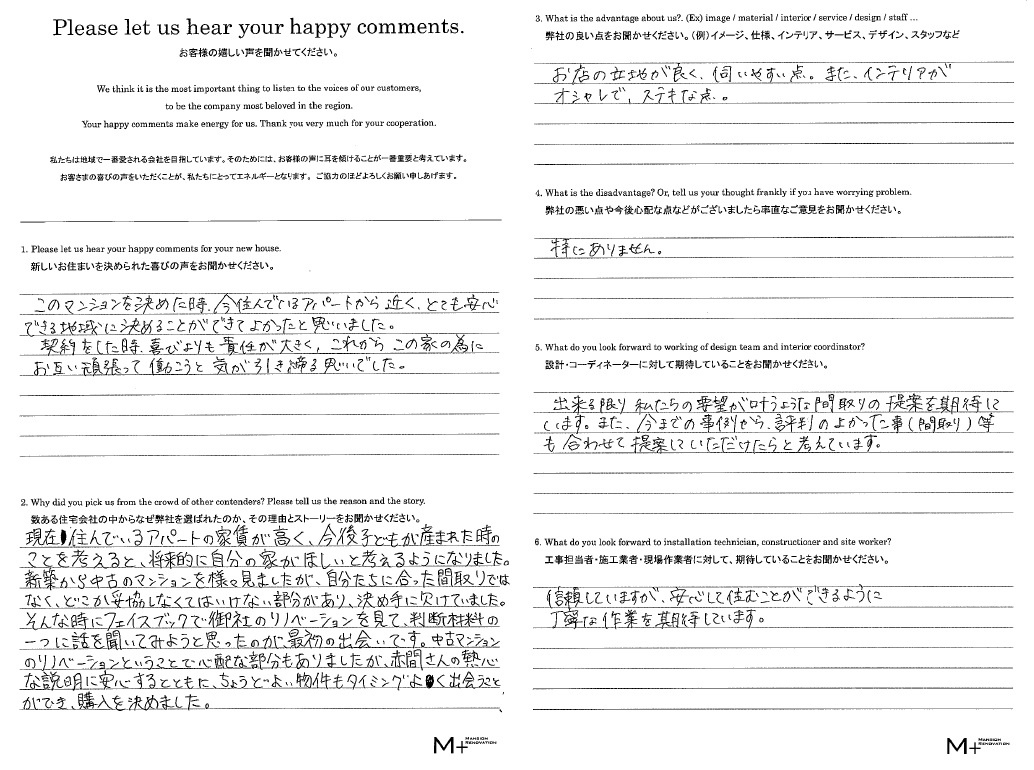 Please let us hear your happy comments.
お客様の嬉しい声を聞かせてください。
We think it is the most important thing to listen to the voices of our customers,
to be the company most beloved in the region.
Your happy comments make energy for us. Thank you very much for your cooperation.
私たちは地域で一番愛される会社を目指しています。そのためには、お客様の声に耳を傾けることが一番重要と考えています。
お客さまの喜びの声をいただくことが、私たちにとってエネルギーとなります。 ご協力のほどよろしくお願い申しあげます。
1. Please let us hear your happy comments for your new house.
新しいお住まいを決められた喜びの声をお聞かせください。
このマンションを決めた時、今住んでいるアパートから近く、とても安心
できる地域に決めることができてよかったと思いました。
契約をした時、喜びよりも責任が大きく、これからこの家の為に
お互い頑張って働こうと気が引き締る思いでした。
2. Why did you pick us from the crowd of other contenders? Please tell us the reason and the story.
数ある住宅会社の中からなぜ弊社を選ばれたのか、その理由とストーリーをお聞かせください。
現在住んでいるアパートの家賃が高く、今後子どもが産まれた時の
ことを考えると、将来的に自分の家がほしいと考えるようになりました。
新築から中古のマンションを様々見ましたが、自分たちに合った間取りでは
なく、どこか妥協しなくてはいけない部分があり、決め手に欠けていました。
そんな時にフェイスブックで御社のリノベーションを見て、判断材料の
一つに話を聞いてみようと思ったのが、最初の出会いです。中古マンション
のリノベーションということで心配な部分もありましたが、赤間さんの熱心
な説明に安心するとともに、ちょうどよい物件もタイミングよく出会うこと
ができ、購入を決めました。
M+ MANSION RENOVATION
3. What is the advantage about us?. (Ex) image / material / interior / service / design / staff ...
弊社の良い点をお聞かせください。(例)イメージ、仕様、インテリア、サービス、デザイン、スタッフなど
お店の立地が良く、伺いやすい点。また、インテリアが
オシャレで、ステキな点。
4. What is the disadvantage? Or, tell us your thought frankly if you have worrying problem.
弊社の悪い点や今後心配な点などがございましたら率直なご意見をお聞かせください。
特にありません。
5. What do you look forward to working of design team and interior coordinator?
設計・コーディネーターに対して期待していることをお聞かせください。
出来る限り私たちの要望が叶うような間取りの提案を期待して
います。また、今までの事例から、評判のよかった事(間取り)等
も合わせて提案していただけたらと考えています。
6. What do you look forward to installation technician, constructioner and site worker?
工事担当者・施工業者・現場作業者に対して、期待していることをお聞かせください。
信頼していますが、安心して住むことができるように
丁寧な作業を期待しています。
M+ MANSION RENOVATION